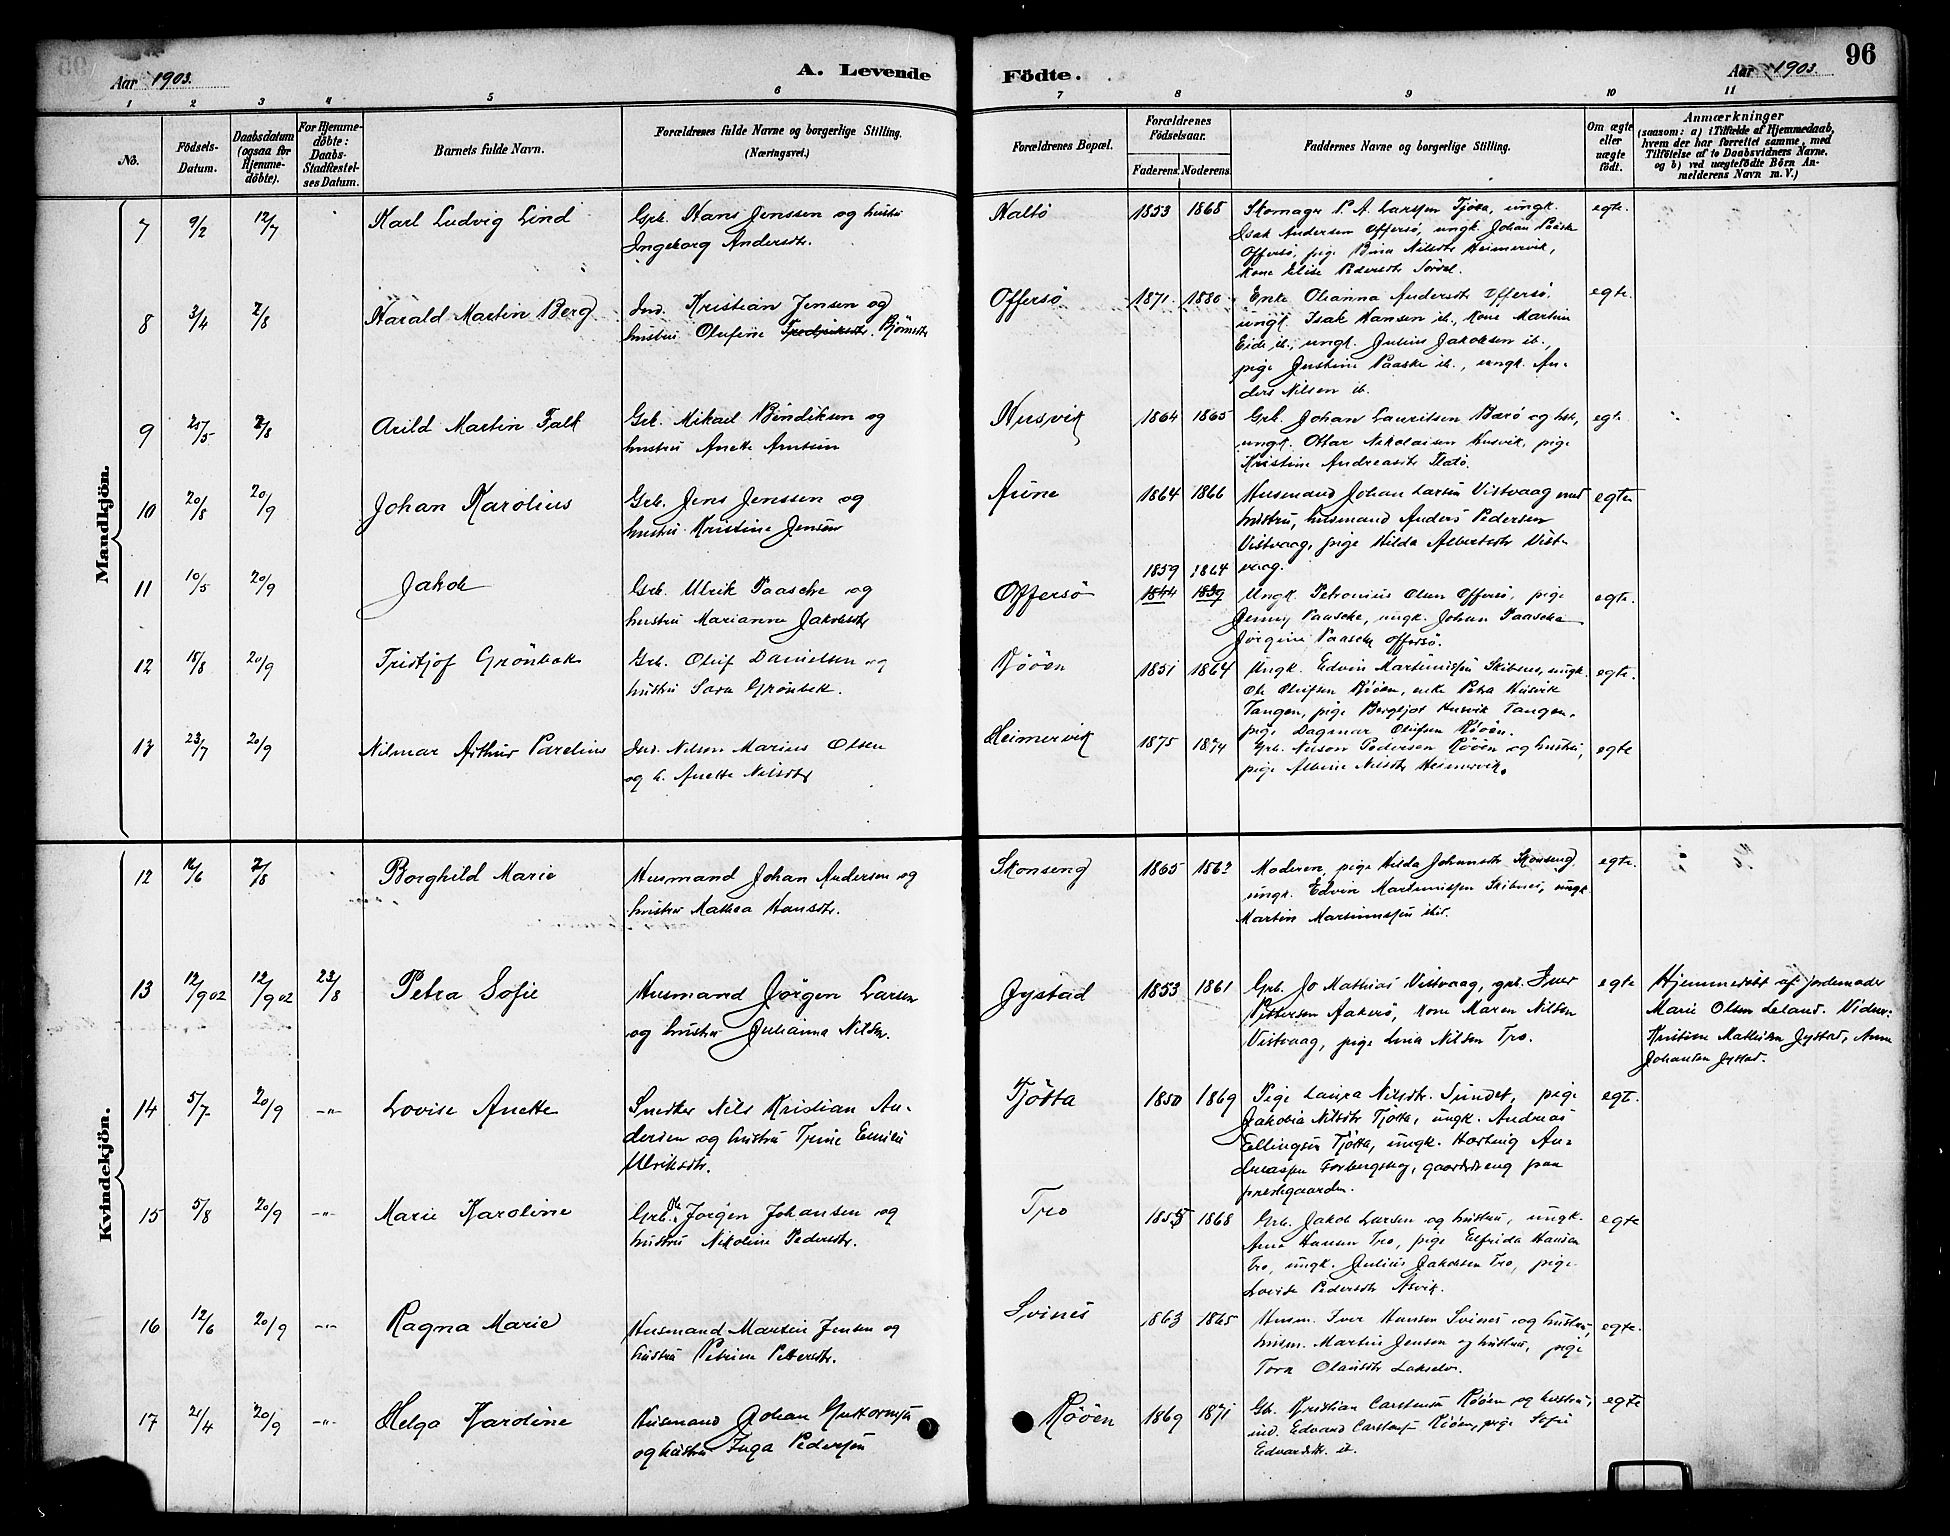 96
Aar 1903. A. Levende Födte. Aar 1903.
1 2 3 4 5 6 7 8 9 10 11
No.
Födsels-
Datum.
Daabsdatum
(ogsaa for
Hjemme-
döbte).
For Hjemme-
döbte:
Daabs-
Stadfæstel-
ses Datum.
Barnets fulde Navn.
Forældrenes fulde Navne og borgerlige Stilling.
(Næringsvei.)
Forældrenes Bopæl.
Forældrenes
Födselsaar.
Faderens. Moderens.
Faddernes Navne og borgerlige Stilling.
Om ægte
eller
uægte
födt.
Anmærkninger
(saasom: a) i Tilfælde af Hjemmedaab,
hvem der har forrettet samme, med
Tilföielse af to Daabsvidners Navne,
og b) ved uægtefödte Börn An-
melderens Navn m. V.)
Mandkjön.
7 9/2 12/7 Karl Ludvig Lind
Grb. Hans Jenssen og hustru
Ingeborg Andersdtr.
1853 1868
Skomager P. A. Larssen Tjötta, ungk.
Isak Andersen Offersö, ungk. Johan Paaske
Offersö, pige Bina Nilsdtr Heimervik,
Kone Elise Pedersdtr
egte.
8 3/4 2/8 Harald Martin Berg
Ind. Kristian Jensen og
hustru Olufine Fredriksdtr. Björnsdtr
Offersö 1871 1880
Enke Olianna Andersdtr Offersö,
ungk. Isak Hansen ib., Kone Martin
Eide ib., ungk. Julius Jakobsen ib.,
pige Justine Paaske ib., ungk. An-
ders Nilsen ib.
egte.
9 25/5 2/8 Arild Martin Falk
Grb. Mikael Bendiksen og
hustru Anette
Husvik 1864 1865
Grb. Johan Lauritsen Barö og hstr,
ungk. Ottar Nikolaisen Husvik, pige
Kristine Andreasdtr
egte.
10 20/8 20/9 Johan Karolius
Grb. Jens Jenssen og
hustru Kristine Jensen
Aune 1864 1866
Husmand Johan Larsen Vistvaag med
hustru, husmand Anders Pedersen
Vistvaag, pige Hilda Albertsdtr Vist-
vaag.
egte
11 10/5 20/9 Jakob
Grb. Ulrik Paasche og
hustru Marianne Jakobsdtr
Offersö
1859 1864
1844 1839
Ungk. Petronius Olsen Offersö, pige
Jenny Paasche, ungk. Johan Paasche
Jörgine Paasche Offersö.
egte.
12 18/8 20/9 Fridtjof Grönbek
Grb. Oluf Danielsen og
hustru Sara Grönbek.
Rööen 1851 1864
Ungk. Edvin Martinussen Skibnes, ungk.
Ole Olufsen Rööen, enke Petra Husvik
Tangen, pige Bergljot Husvik Tangen,
pige Dagmar Olufsen Rööen.
egte.
13 23/7 20/9 Hilmar Arthur Parelius
Ind. Nilson Marius Olsen
og h. Anette Nilsdtr
Heimervik 1875 1874
Grb. Nilson Pedersen Rööen og hustru,
pige Albine Nilsdtr Heimervik.
egte
Kvindekjön.
12 16/6 2/8 Borghild Marie
Husmand Johan Andersen og
hustru Mathea Hansdtr.
Skonseng 1865 1863
Moderen, pige Hilda Johansdtr Skonseng,
ungk. Edvin Martinussen Skibnes, ungk
Martin Martinussen ibid.
egte.
13 12/9 02 12/9 02 23/8 Petra Sofie
Husmand Jörgen Larsen
og hustru Julianna Nilsdr.
Jystad 1853 1861
Grb. Jo Mathias Vistvaag, grb. Iver
Pettersen Aakerö, Kone Maren Nilsen
Vistvaag, pige Lina Nilsen Tro.
egte
Hjemmedöbt af jordemoder
Marie Olsen Leland. Vidner:
Kristian Mathisen Jystad, Anne
Johansen Jystad.
14 5/7 20/9 -"- Lovise Anette
Snedker Nils Kristian An-
dersen og hustru Trine Emilie
Ulriksdtr.
Tjötta 1850 1869
Pige Laura Nilsdtr. Sundet, pige
Jakobia Nilsdtr Tjötta, ungk. Andreas
Ellingsen Tjötta, ungk. Hartvig An-
dreassen Forbergskog, gaardsdreng paa
prestegaarden.
egt.
15 5/8 20/9 -"- Marie Karoline
Grb. Ole Jörgen Johansen og
hustru Nikoline Pedersdtr.
Tro 1855 1868
Grb. Jakob Larsen og hustru, ungk.
Arne Hansen Tro, pige Elfrida Hansen
Tro, ungk. Julius Jakobsen Tro, pige
Lovise Pedersdtr Åsvik.
egte
16 12/6 20/9 -"- Ragna Marie
Husmand Martin Jensen og
hustru Petrine Pettersdtr.
Svines 1863 1865
Husm. Iver Hansen Svines og hustru,
husm. Martin Jensen og hustru, pige
Tora Olausdtr Lakselv.
egte.
17 21/4 20/9 -"- Helga Karoline
Husmand Johan Guttormsen
og hustru Inga Pederssen
Rööen 1869 1871
Grb. Kristian Carstensen Rööen og hustru,
ind. Edvard Carstensen Rööen, pige Sofie
Edvardsdtr. ib.
egte